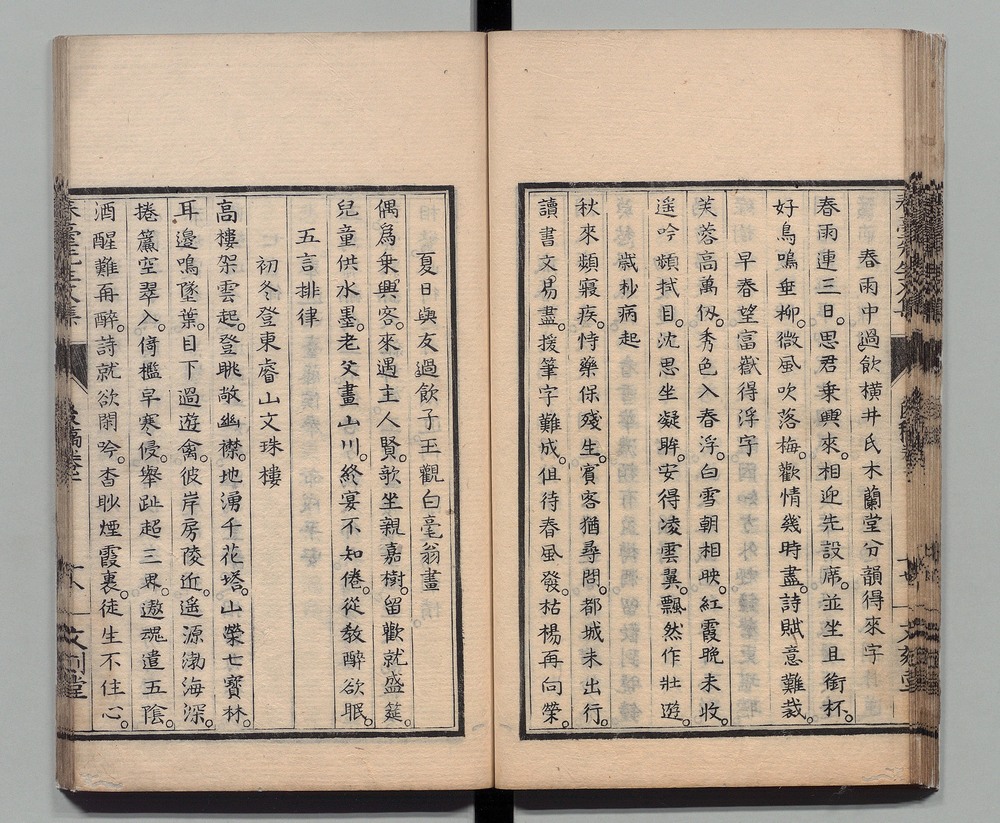 春雨中過飲橫井氏木蘭堂分韻得來字
春雨連三日。思君乘興來。相迎先設席。並坐且銜杯。
好鳥鳴垂柳。微風吹落梅。歡情幾時盡。詩賦意難裁。
早春望富嶽得浮字
芙蓉高萬仭。秀色入春浮。白雪朝相映。紅霞晚未收。
遥吟頻拭目。沈思坐凝眸。安得凌雲翼。飄然作壯遊。
歲杪病起
秋來頻寢疾。恃藥保殘生。賓客猶尋問。都城未出行。
讀書文易盡。援筆字難成。但待春風發。枯楊再向榮。
夏日與友過飲子玉觀白毫翁畫
偶爲乘興客。來遇主人賢。歌坐親嘉樹。留歡就盛筵。
兒童供水墨。老父畫山川。終宴不知倦。從教醉欲眠。
五言排律
初冬登東睿山文珠樓
高樓架雲起。登眺敞幽襟。地湧千花塔。山榮七寶林。
耳邊鳴墜葉。目下過遊禽。彼岸房陵近。遥源渤海深。
捲簾空翠入。倚檻早寒侵。舉趾起三界。遨魂遣五陰。
酒醒難再醉。詩就欲閑吟。杳眇煙霞裏。徒生不住心。
春臺先生文集
後稿卷二
文刻堂